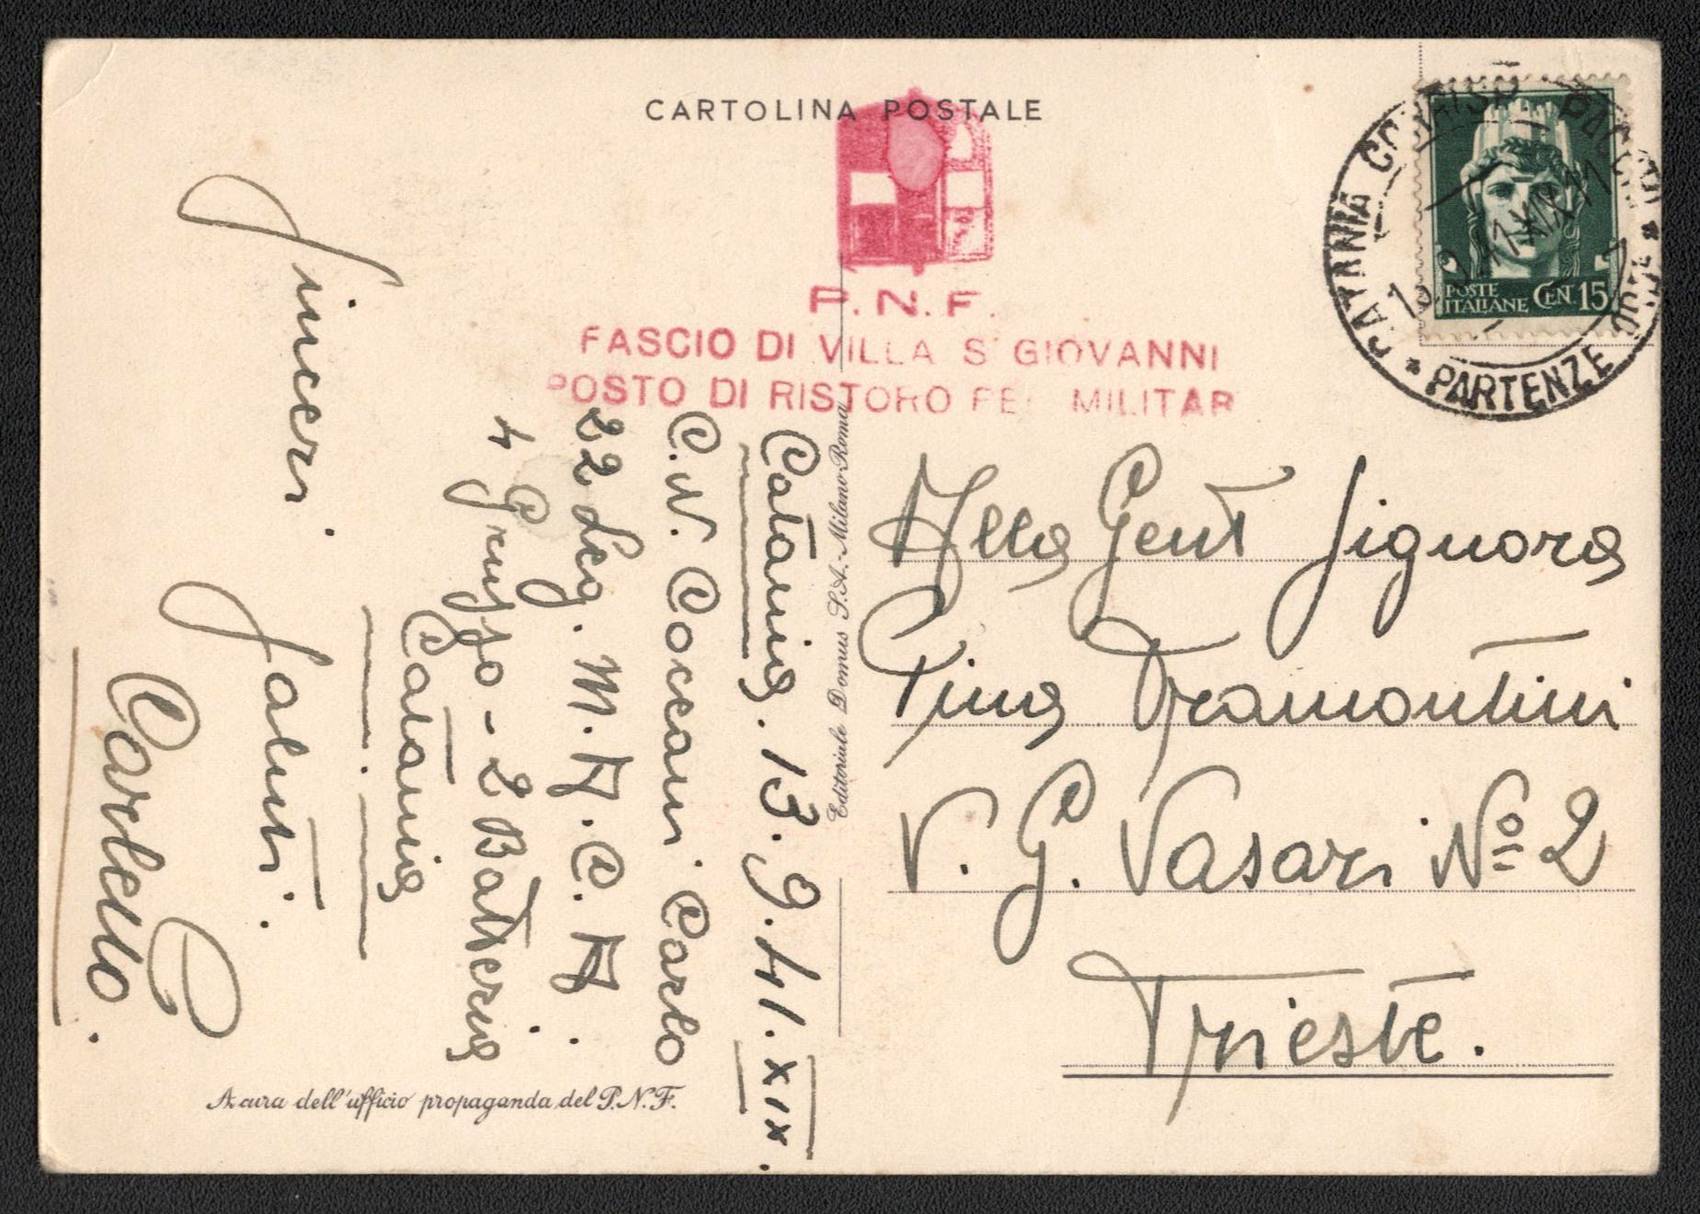 CARTOLINA POSTALE
P.N.F.
FASCIO DI VILLA S GIOVANNI
POSTO DI RISTORO PE MILITAR
POSTE
ITALIANE CEN 15
CATANIA PACCHI
PARTENZE
Catania. 13.9.41.XIX.
C.N. Coccani Carlo
22 Leg. M.A.C.A.
4 Gruppo - 2 Batteria
Catania
Sinceri
Saluti.
Carletto.
Editoriale Domus S.A.-Milano-Roma
Alla Gent Signora
Pina Tramontini
V. G. Vasari Nº 2
Trieste.
A cura dell'ufficio propaganda del P.N.F.